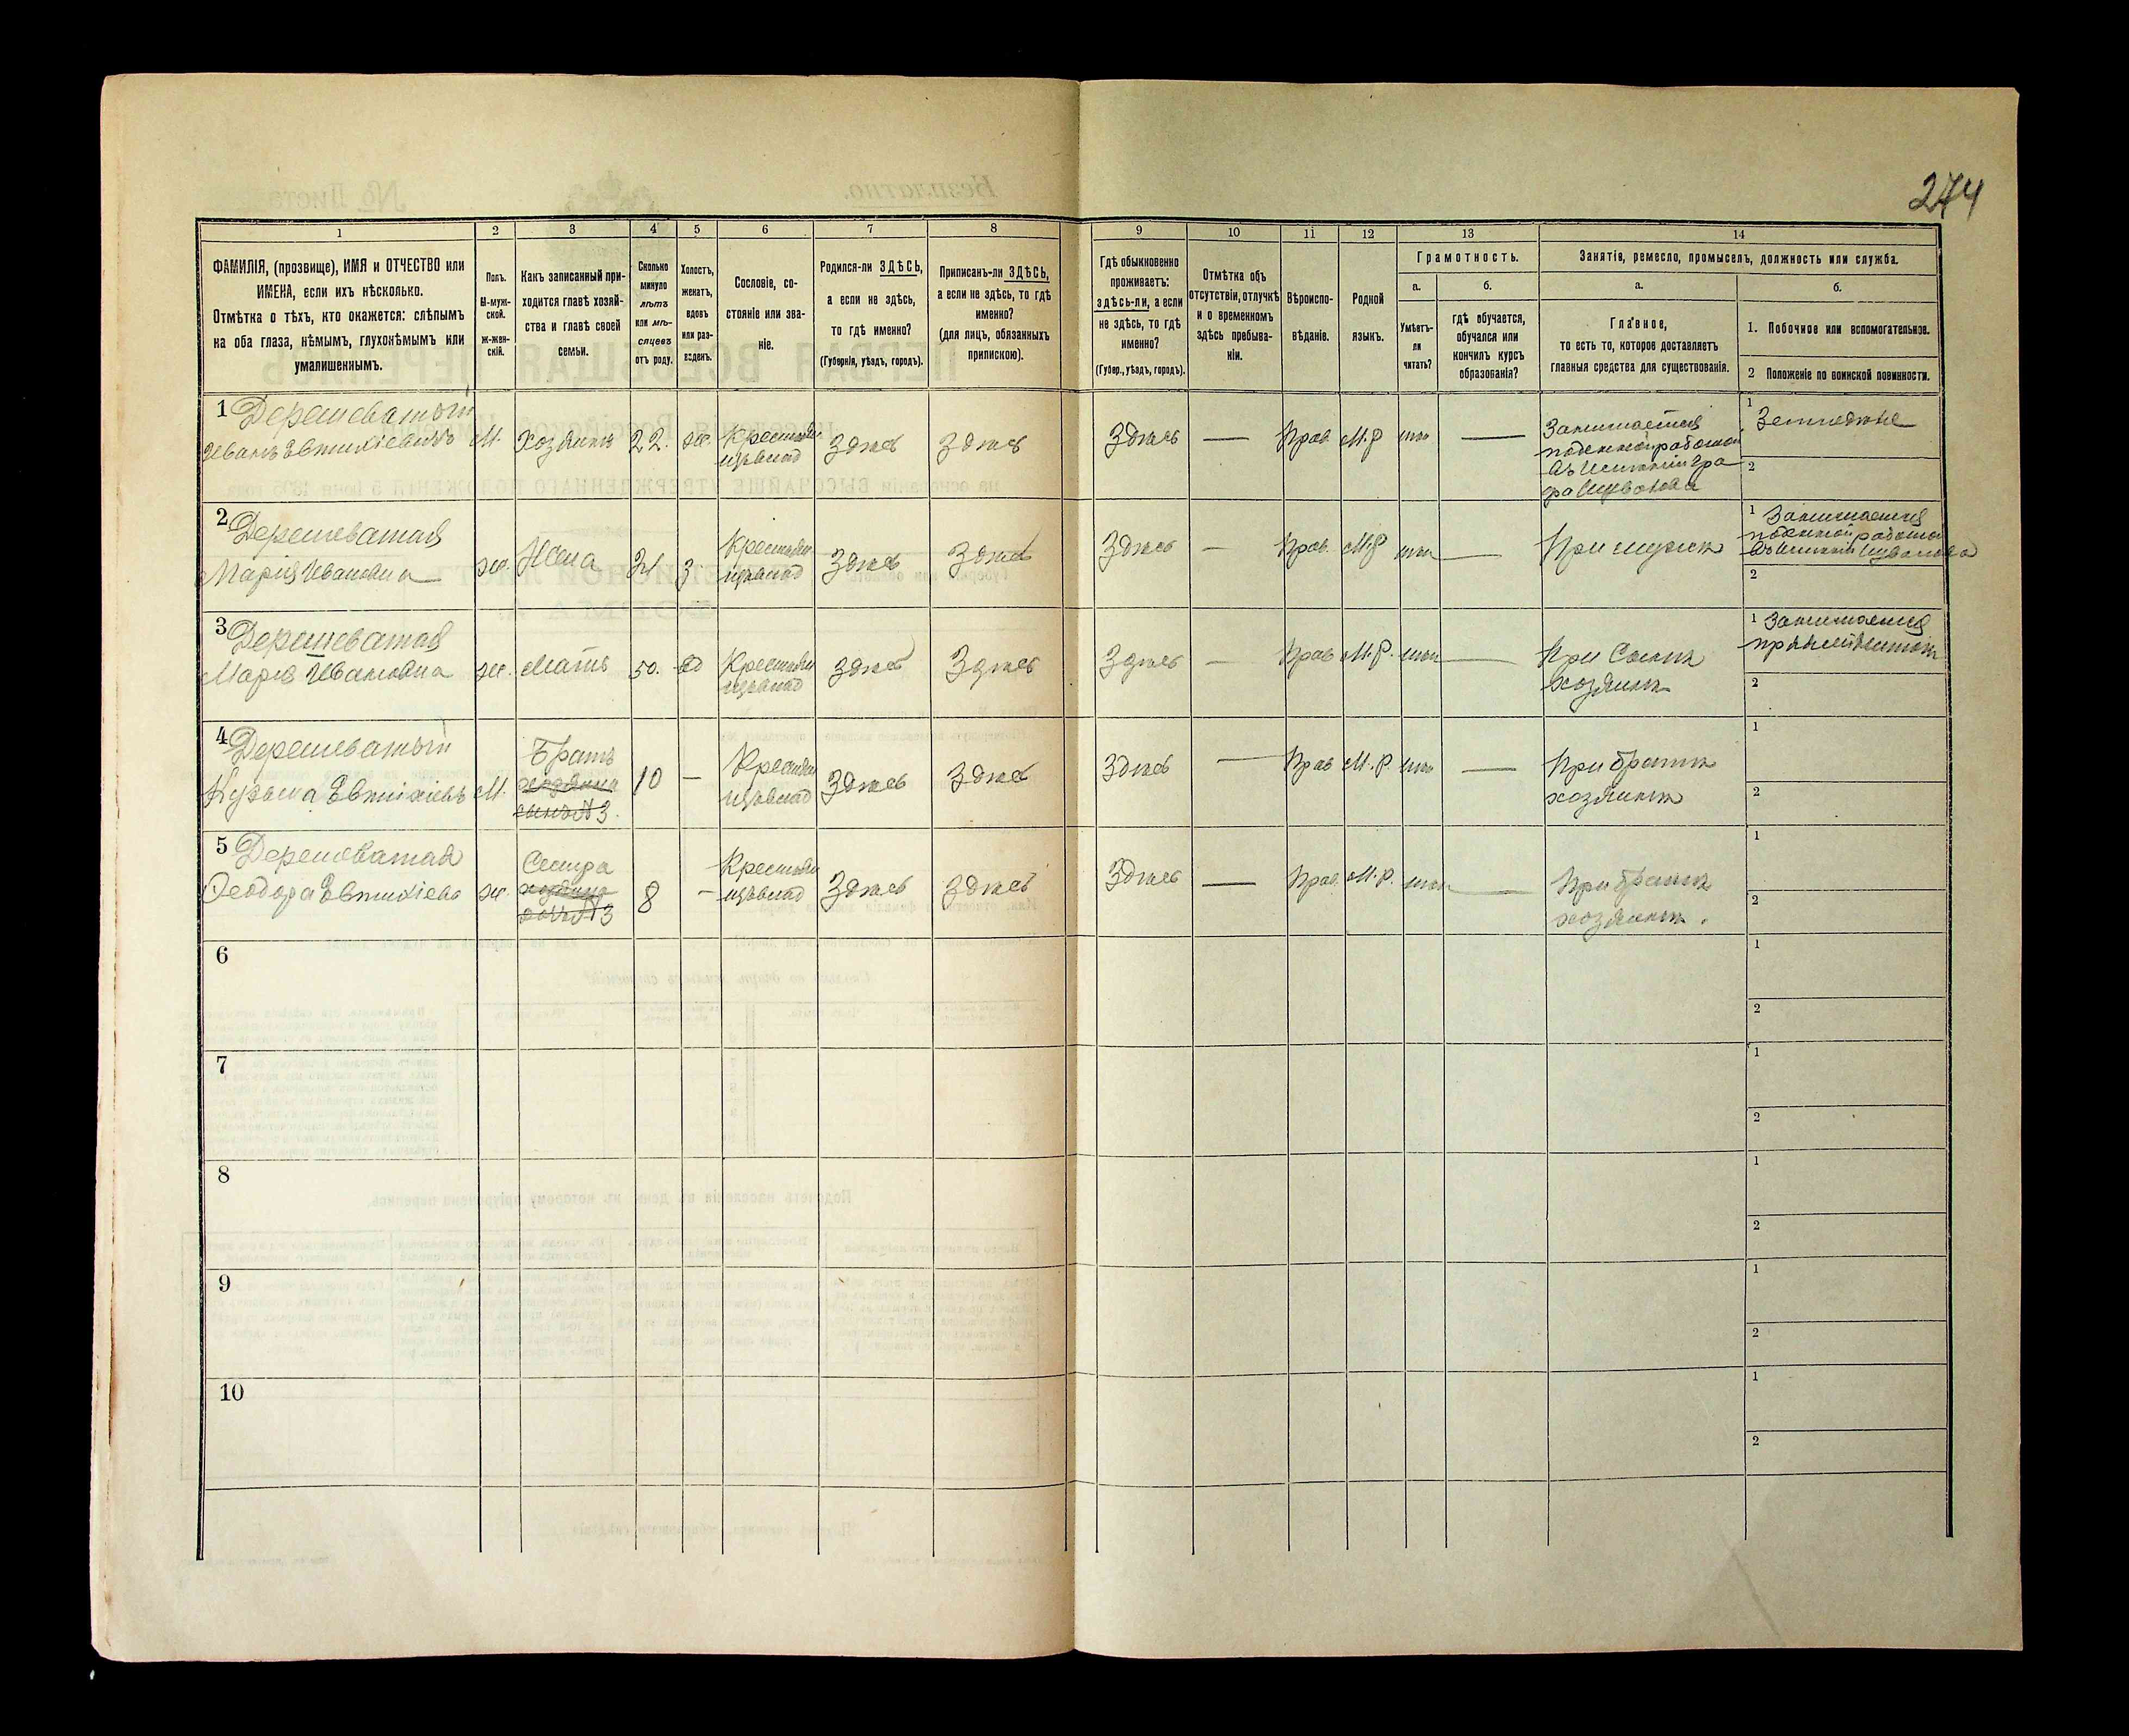 274
1 2 3 4 5 6 7 8 9 10 11 12 13 14
ФАМИЛІЯ, (прозвище), ИМЯ и ОТЧЕСТВО или
ИМЕНА, если ихъ нѣсколько.
Отмѣтка о тѣхъ, кто окажется: слѣпымъ
на оба глаза, нѣмымъ, глухонѣмымъ или
умалишеннымъ.
Полъ.
М-муж-
ской.
ж-жен-
скій.
Какъ записанный при-
ходится главѣ хозяй-
ства и главѣ своей
семьи.
Сколько
минуло
лѣтъ
или мѣ-
сяцевъ
отъ роду.
Холостъ,
женатъ,
вдовъ
или раз-
веденъ.
Сословіе, со-
стояніе или зва-
ніе.
Родился-ли ЗДѢСЬ,
а если не здѣсь,
то гдѣ именно?
(Губернія, уѣздъ, городъ).
Приписанъ-ли ЗДѢСЬ,
а если не здѣсь, то гдѣ
именно?
(для лицъ, обязанныхъ
припискою).
Гдѣ обыкновенно
проживаетъ:
здѣсь-ли, а если
не здѣсь, то гдѣ
именно?
(Губер., уѣздъ, городъ).
Отмѣтка объ
отсутствіи, отлучкѣ
и о временномъ
здѣсь пребыва-
ніи.
Вѣроиспо-
вѣданіе.
Родной
языкъ.
Грамотность.
а.
Умѣетъ-
ли
читать?
б.
гдѣ обучается,
обучался или
кончилъ курсъ
образованія?
Занятія, ремесло, промыселъ, должность или служба.
а.
Главное,
то есть то, которое доставляетъ
главныя средства для существованія.
б.
1. Побочное или вспомогательное.
2 Положеніе по воинской повинности.
1 Дерешеватый
Иванъ Евтихіевичъ М. Хозяинъ 22. ж. Крестьян
Здѣсь Здѣсь Здѣсь — Прав М.Р —
Занимается
поденной работой
1
2
2 Дерешеватая
Марія Ивановна ж. Жена 21 З Крестьян
Здѣсь Здѣсь Здѣсь — Прав. М.Р — При мужѣ
1 Занимается
поденной работой
2
3 Дерешеватая
Марія Ивановна ж. Мать 50. Крестьян
Здѣсь Здѣсь Здѣсь — Прав М.Р. — При Сынѣ
хозяинѣ
1 Занимается
2
4 Дерешеватый
Кузьма Евтихіевъ М. Братъ
хозяина
сынъ №3. 10 — Крестьян
Здѣсь Здѣсь Здѣсь — Прав М.Р. — При братѣ
хозяинѣ
1
2
5 Дерешеватая
Ѳеодора Евтихіева ж. Сестра
хозяина
дочь №3 8 — Крестьян
Здѣсь Здѣсь Здѣсь — Прав. М.Р. — При братѣ
хозяинѣ.
1
2
6
1
2
7
1
2
8
1
2
9
1
2
10
1
2